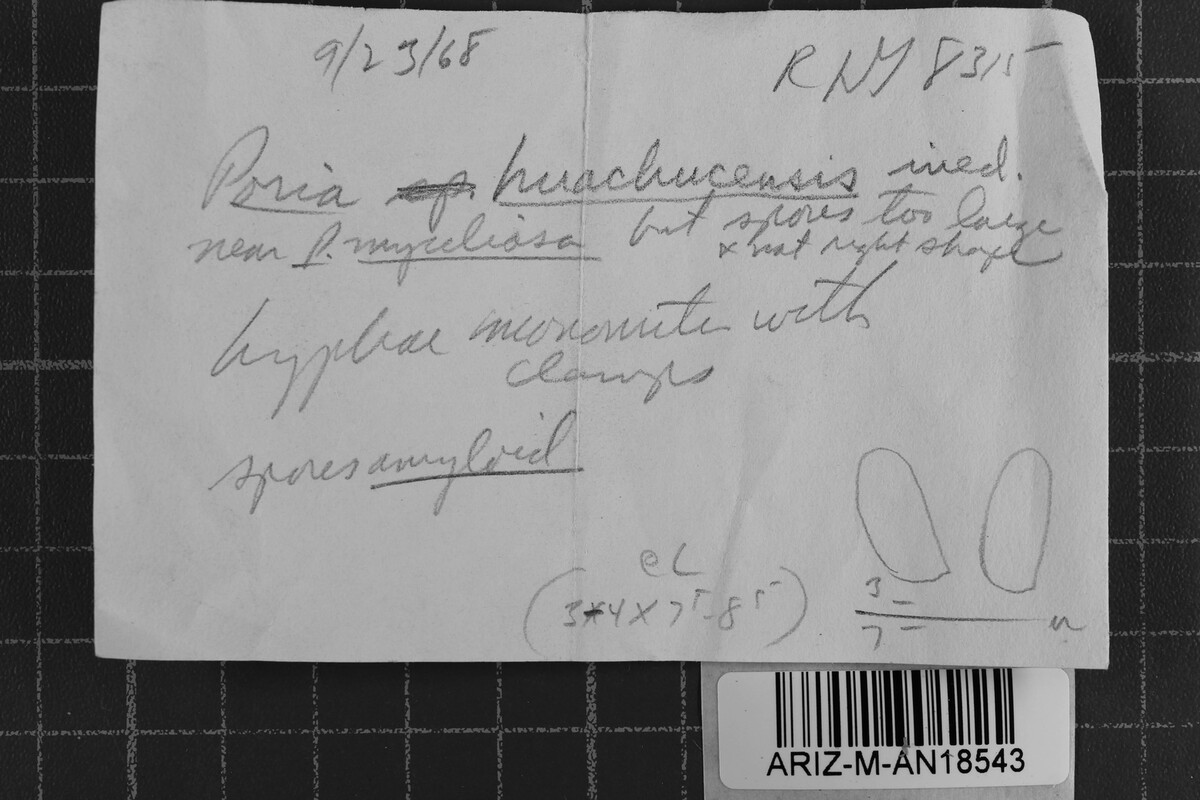 9/23/68 RNY 8315
Poria sp. huachucensis ined.
near P. myceliosa but spores too large
x not right shape
hyphae monomitic with
clamps
spores amyloid
(3-4 X 7⁵-8⁵)
3 –
7 –
ARIZ-M-AN18543